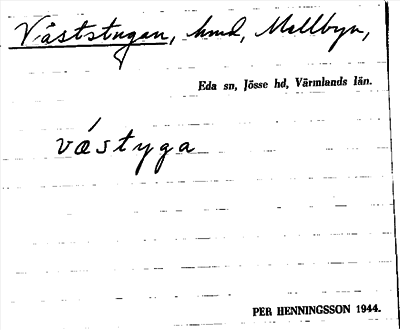 Väststugan, hmd, Mellbyn,
Eda sn, Jösse hd, Värmlands län.
vǽstyga
PER HENNINGSSON 1944.